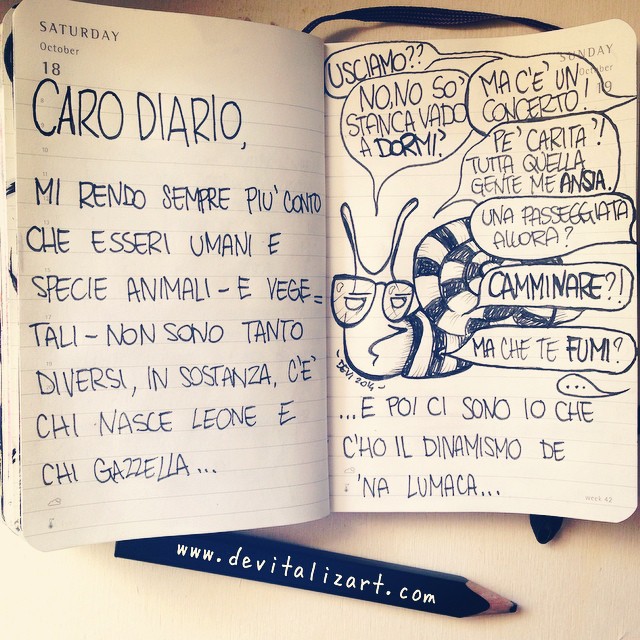 SATURDAY
October
18
CARO DIARIO,
MI RENDO SEMPRE PIU' CONTO
CHE ESSERI UMANI E
SPECIE ANIMALI - E VEGE=
TALI - NON SONO TANTO
DIVERSI, IN SOSTANZA, C'E'
CHI NASCE LEONE E
CHI GAZZELLA...
SUNDAY
October
19
USCIAMO??
NO, NO SO'
STANCA VADO
A DORMI?
MA C'E' UN
CONCERTO!
PE' CARITA'?!
TUTTA QUELLA
GENTE ME ANSIA.
UNA PASSEGGIATA
ALLORA?
CAMMINARE?!
MA CHE TE FUMI?
...
DEVI 2014
...E POI CI SONO IO CHE
C'HO IL DINAMISMO DE
'NA LUMACA...
week 42
www.devitalizart.com